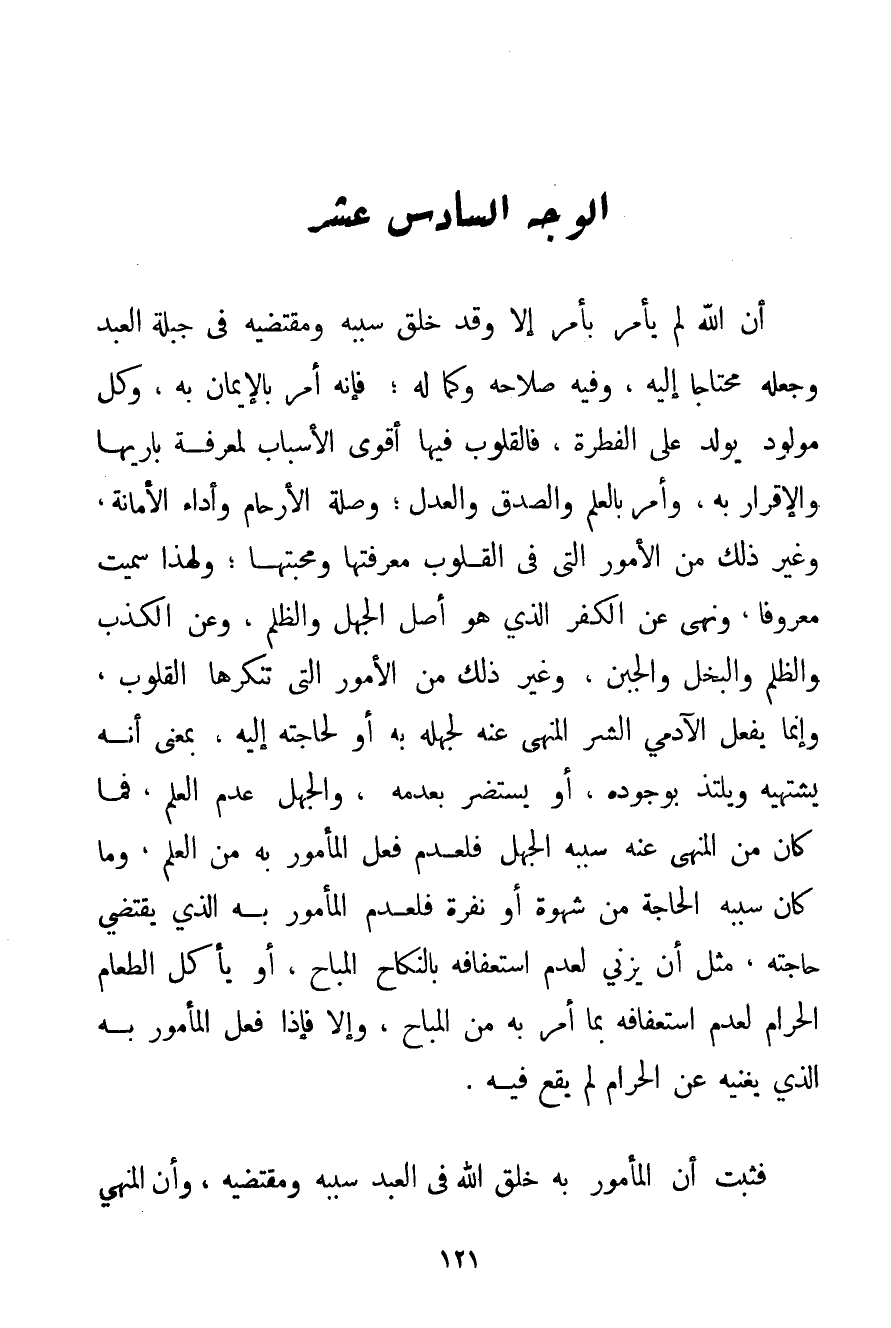 الوجه السادس عشر
أن الله لم يأمر بأمر إلا وقد خلق سببه ومقتضيه فى جبلة العبد
وجعله محتاجا إليه ، وفيه صلاحه وكما له ؛ فإنه أمر بالإيمان به ، وكل
مولود يولد على الفطرة ، فالقلوب فيها أقوى الأسباب لمعرفة باريها
والإقرار به ، وأمر بالعلم والصدق والعدل ؛ وصلة الأرحام وأداء الأمانة ،
وغير ذلك من الأمور التى فى القلوب معرفتها ومحبتها ؛ ولهذا سميت
معروفا ، ونهى عن الكفر الذي هو أصل الجهل والظلم ، وعن الكذب
والظلم والبخل والجبن ، وغير ذلك من الأمور التى تنكرها القلوب ،
وإنما يفعل الآدمي الشر المنهى عنه لجهله به أو لحاجته إليه ، بمعنى أنه
يشتهيه ويلتذ بوجوده ، أو يستضر بعدمه ، والجهل عدم العلم ، فما
كان من المنهى عنه سببه الجهل فلعدم فعل المأمور به من العلم ، وما
كان سببه الحاجة من شهوة أو نفرة فلعدم المأمور به الذي يقتضي
حاجته ، مثل أن يزني لعدم استعفافه بالنكاح المباح ، أو يأكل الطعام
الحرام لعدم استعفافه بما أمر به من المباح ، وإلا فإذا فعل المأمور به
الذي يغنيه عن الحرام لم يقع فيه .
فثبت أن المأمور به خلق الله فى العبد سببه ومقتضيه ، وأن المنهي
١٢١